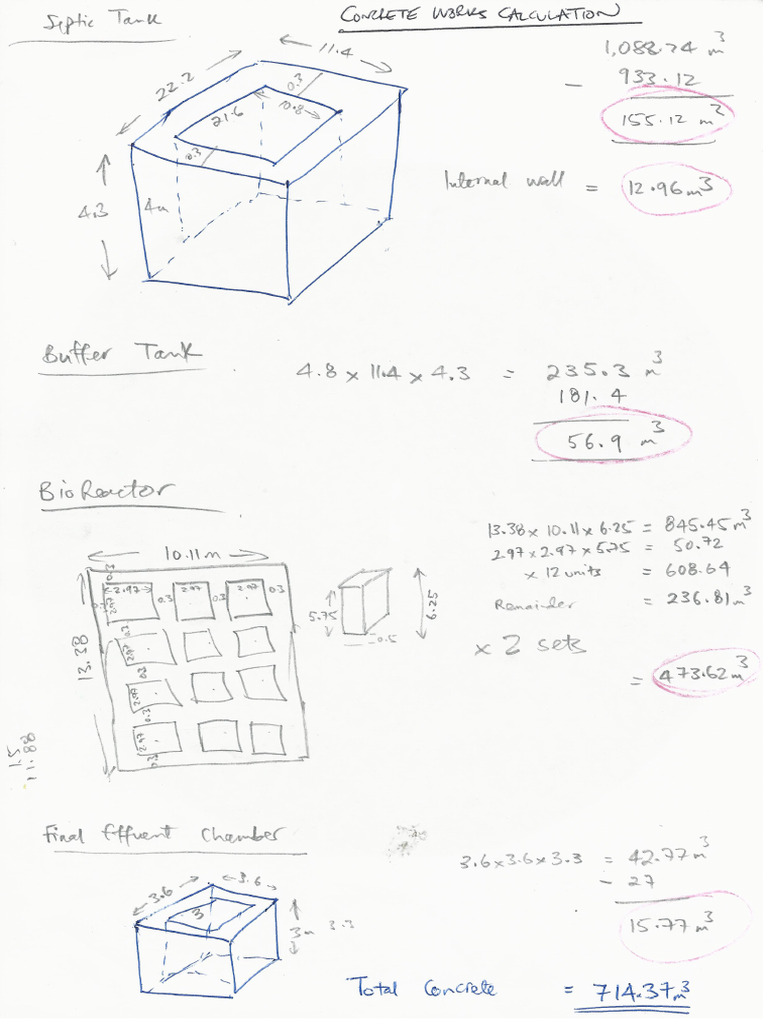 Septic Tank
CONCRETE WORKS CALCULATION
22.2
11.4
0.3
10.8
21.6
0.3
4.3
4m
1,088.24 m³
- 933.12
155.12 m³
Internal wall = 12.96 m³
Buffer Tank
4.8 x 11.4 x 4.3 = 235.3 m³
181.4
56.9 m³
BioReactor
10.11m
13.38
0.3
2.97
2.97
2.97
2.97
0.3
0.3
0.3
0.3
2.97
0.3
2.97
0.3
2.97
0.3
5.75
6.25
0.5
13.38 x 10.11 x 6.25 = 845.45 m³
2.97 x 2.97 x 5.75 = 50.72
x 12 units = 608.64
Remainder = 236.81 m³
x 2 sets
= 473.62 m³
1.5
11.88
Final Effuent Chamber
3.6
3.6
3
3m
3.3
3.6 x 3.6 x 3.3 = 42.77 m³
- 27
15.77 m³
Total Concrete = 714.37 m³